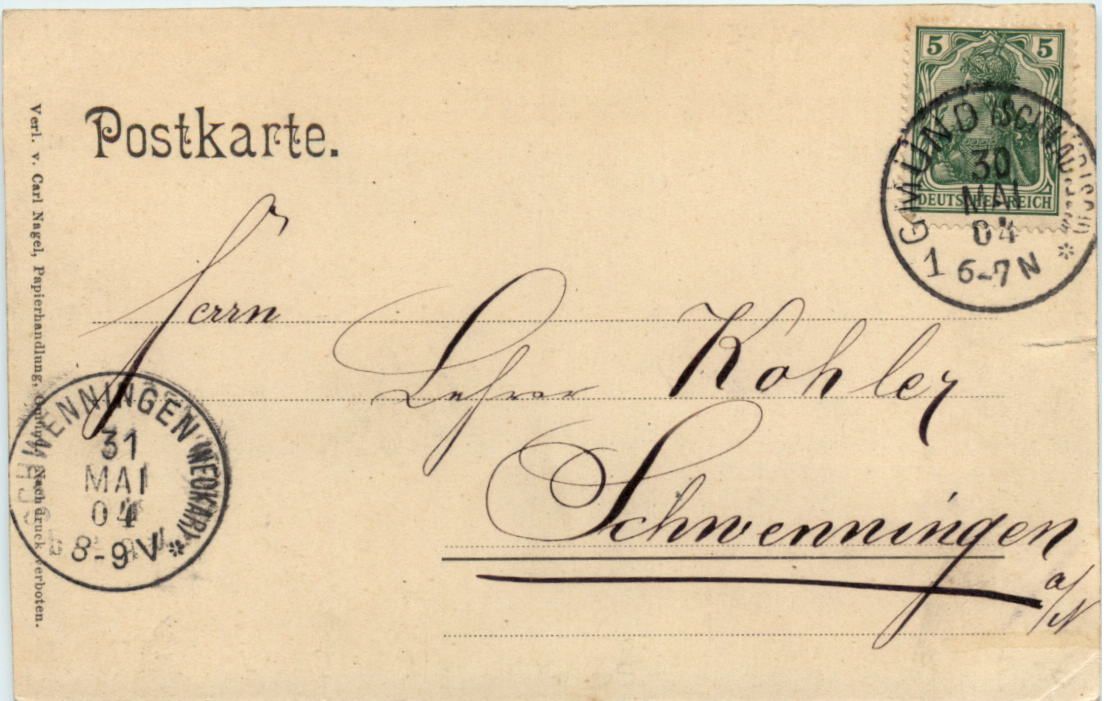 Postkarte.
5 5
DEUTSCHES REICH
GMÜND (SCHWÄBISCH)
30
MAI
04
6-7 N
1 *
Herrn
Lehrer Kohler
Schwenningen
a/N
SCHWENNINGEN (NECKAR)
31
MAI
04
8-9 V *
Verl. v. Carl Nagel, Papierhandlung, Gmünd. Nachdruck verboten.